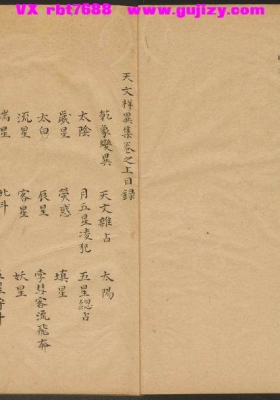 VX rbt7688 www.gujizy.com
天文祥異集卷之上目錄
乾象變異 天文雜占 太陽
太陰 月五星凌犯 五星總占
歲星 熒惑 填星
太白 辰星 孛彗客流飛奔
流星 客星 妖星
瑞星 北斗